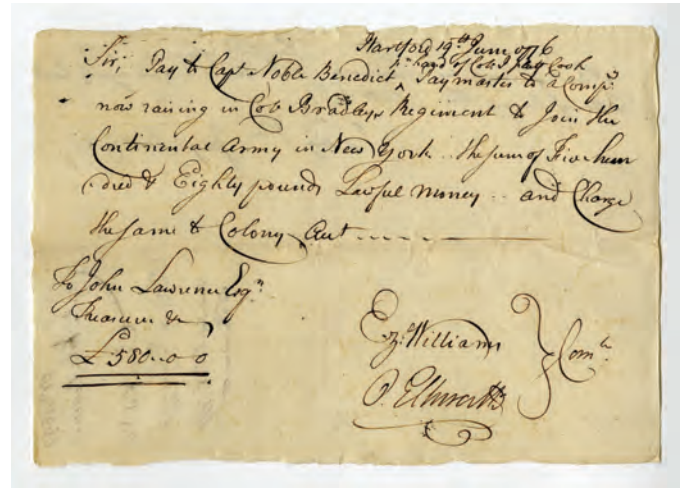 Hartford 19th June 1776
Sir, Pay to Capt Noble Benedict pr hand of Colo J Platt Cook Paymaster to a Compy
now raising in Colo Bradleys Regiment to Join the
Continental Army in New York .. the sum of Five hun
dred & Eighty pounds Lawful money .. and Charge
the same to Colony Acct
To John Lawrence Esqr
Treasurer &c
£580..0..0
Ezl Williams
O. Ellsworth
Comte